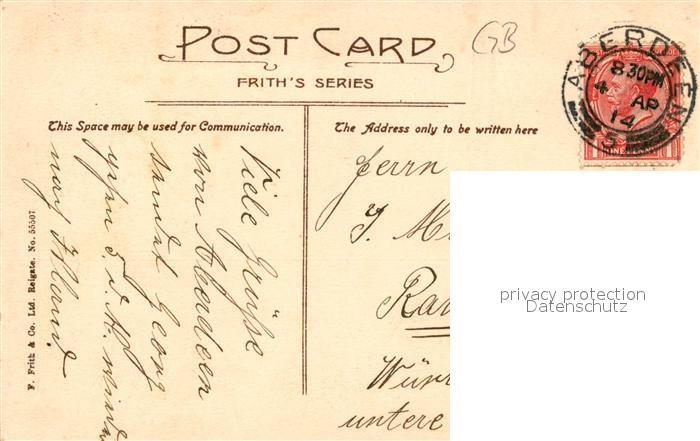 POST CARD
FRITH'S SERIES
GB
ABERDEEN
8.30 PM
4 AP
14
5
ONE PENNY
This Space may be used for Communication.
The Address only to be written here
Viele Grüße
von Aberdeen
sendet Georg
5.
nach
Herrn
J. M
Ra
Würt
untere
F. Frith & Co. Ltd. Reigate. No. 55507
privacy protection
Datenschutz